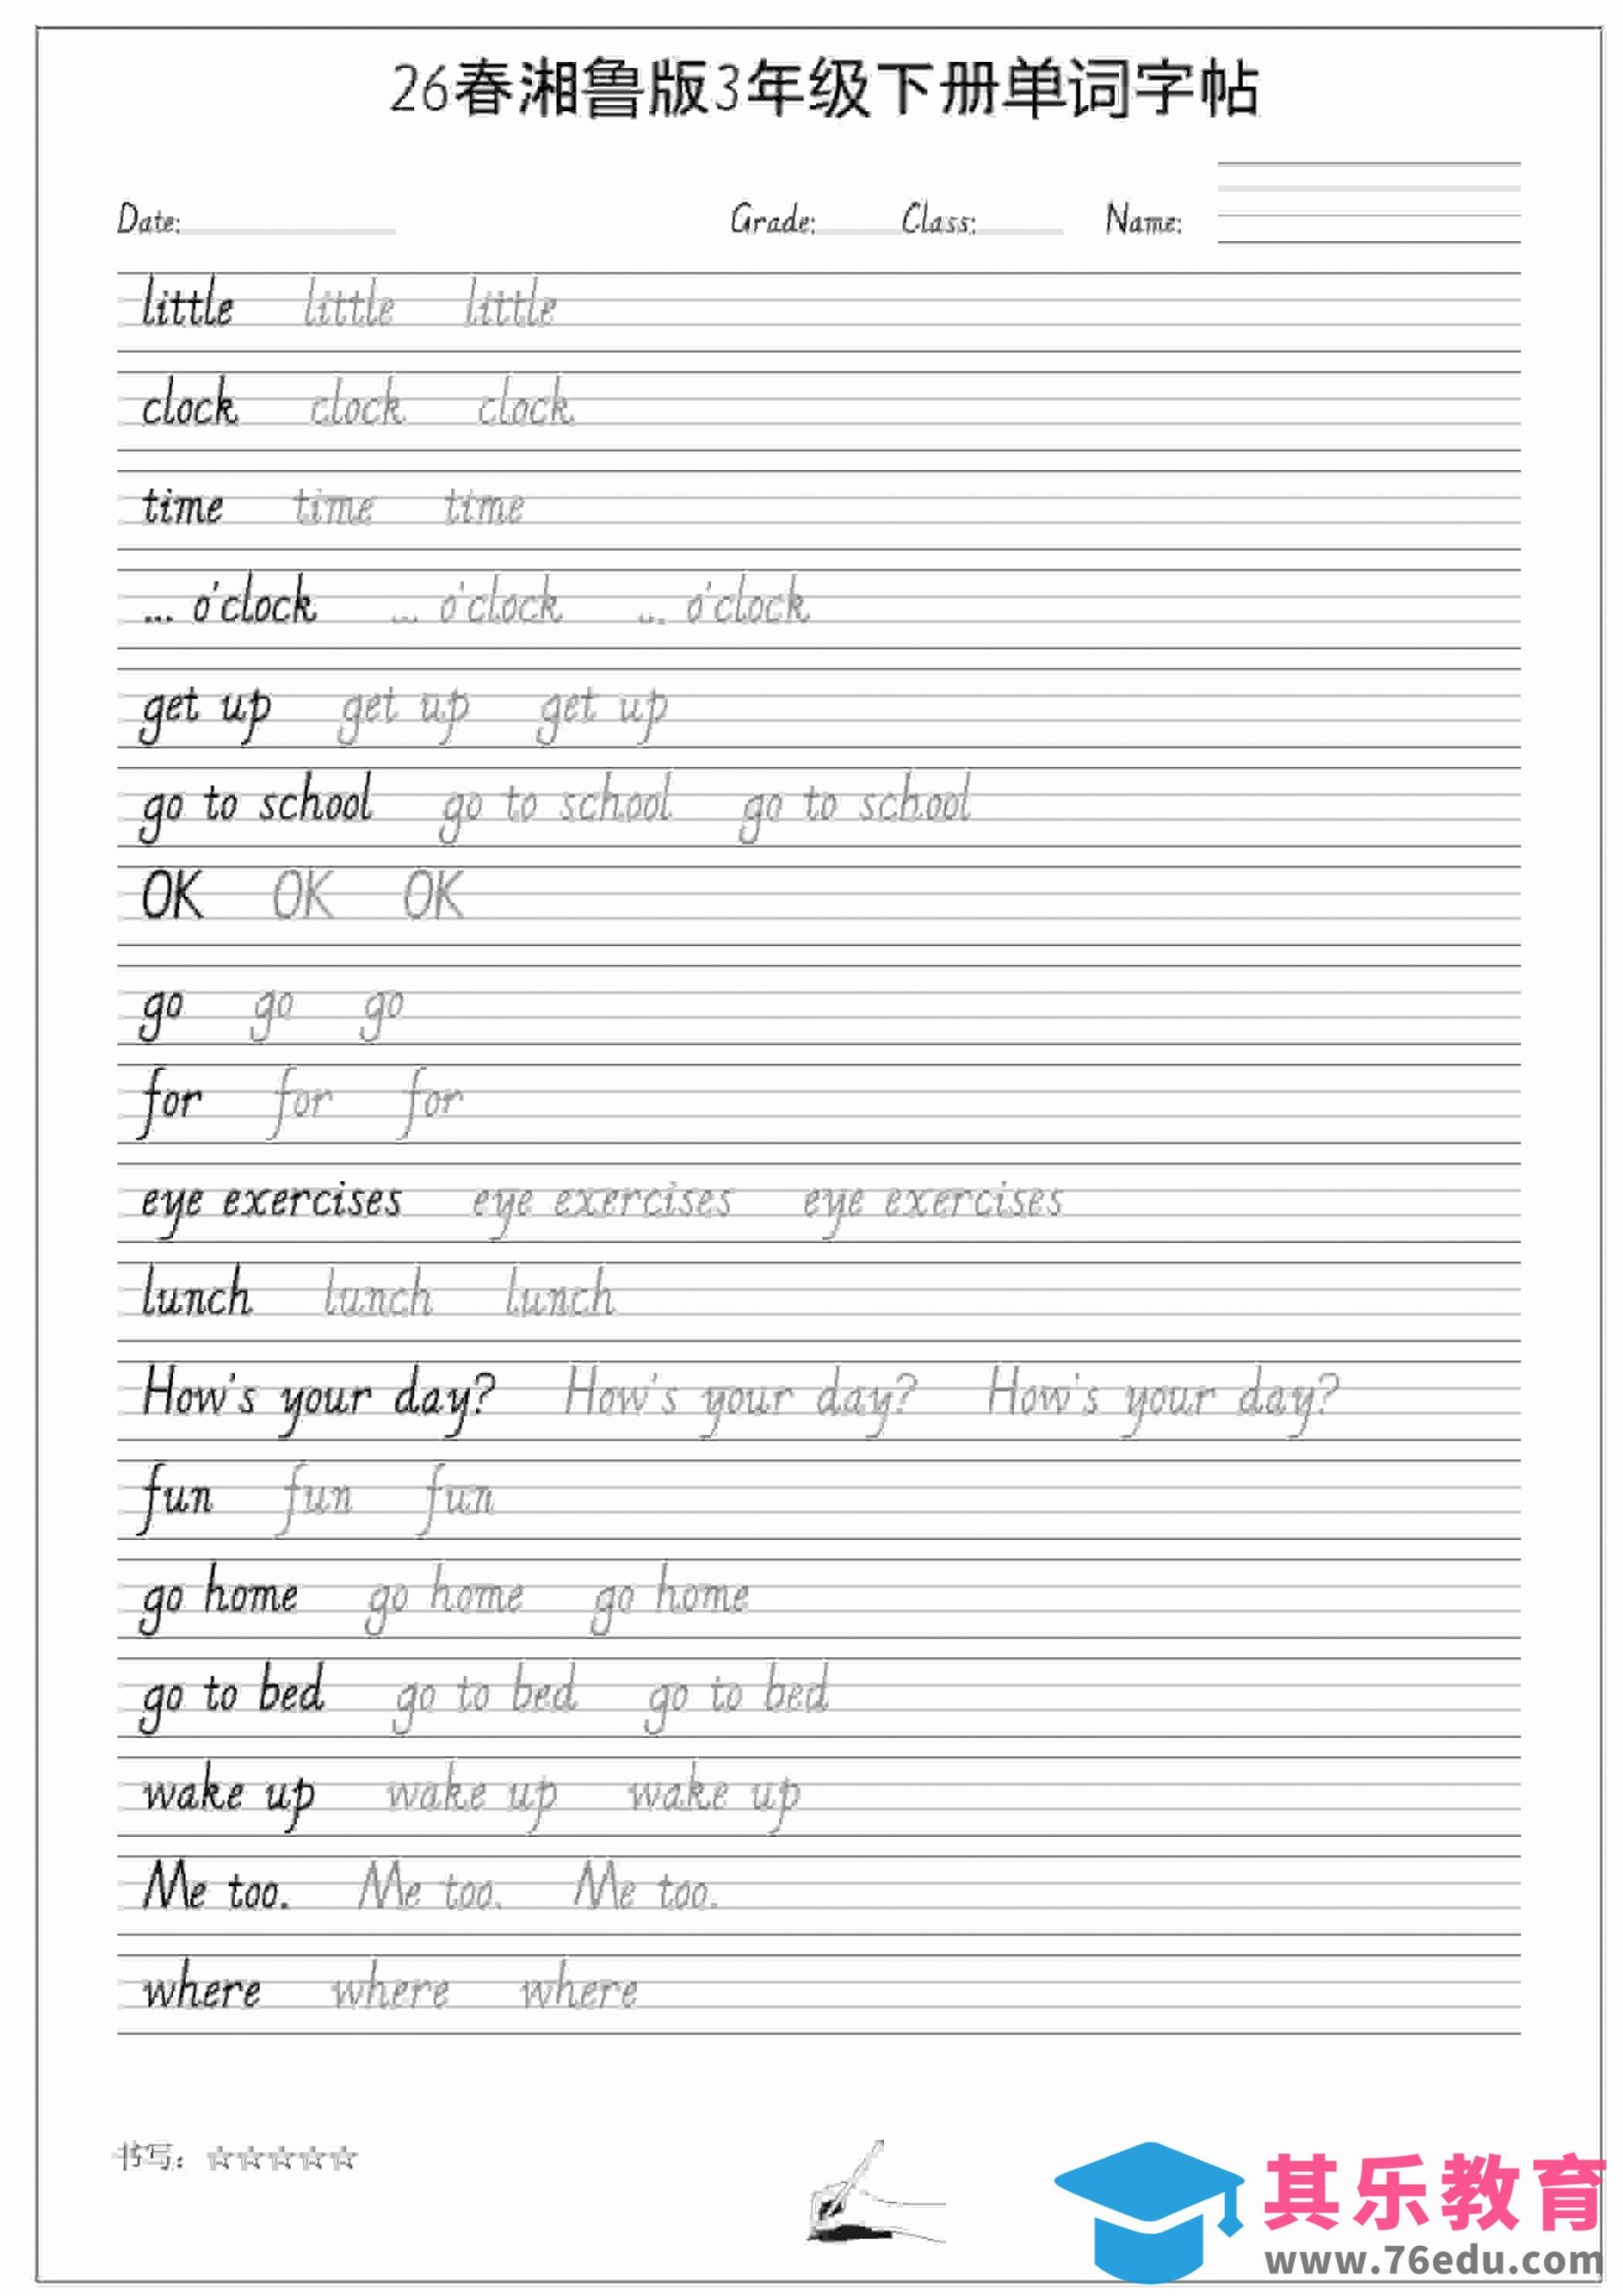 26春湘鲁版3年级下册单词字帖
Date: Grade: Class: Name:
little little little
clock clock clock
time time time
... o'clock ... o'clock ... o'clock
get up get up get up
go to school go to school go to school
OK OK OK
go go go
for for for
eye exercises eye exercises eye exercises
lunch lunch lunch
How's your day? How's your day? How's your day?
fun fun fun
go home go home go home
go to bed go to bed go to bed
wake up wake up wake up
Me too. Me too. Me too.
where where where
书写：☆☆☆☆☆
其乐教育
www.76edu.com